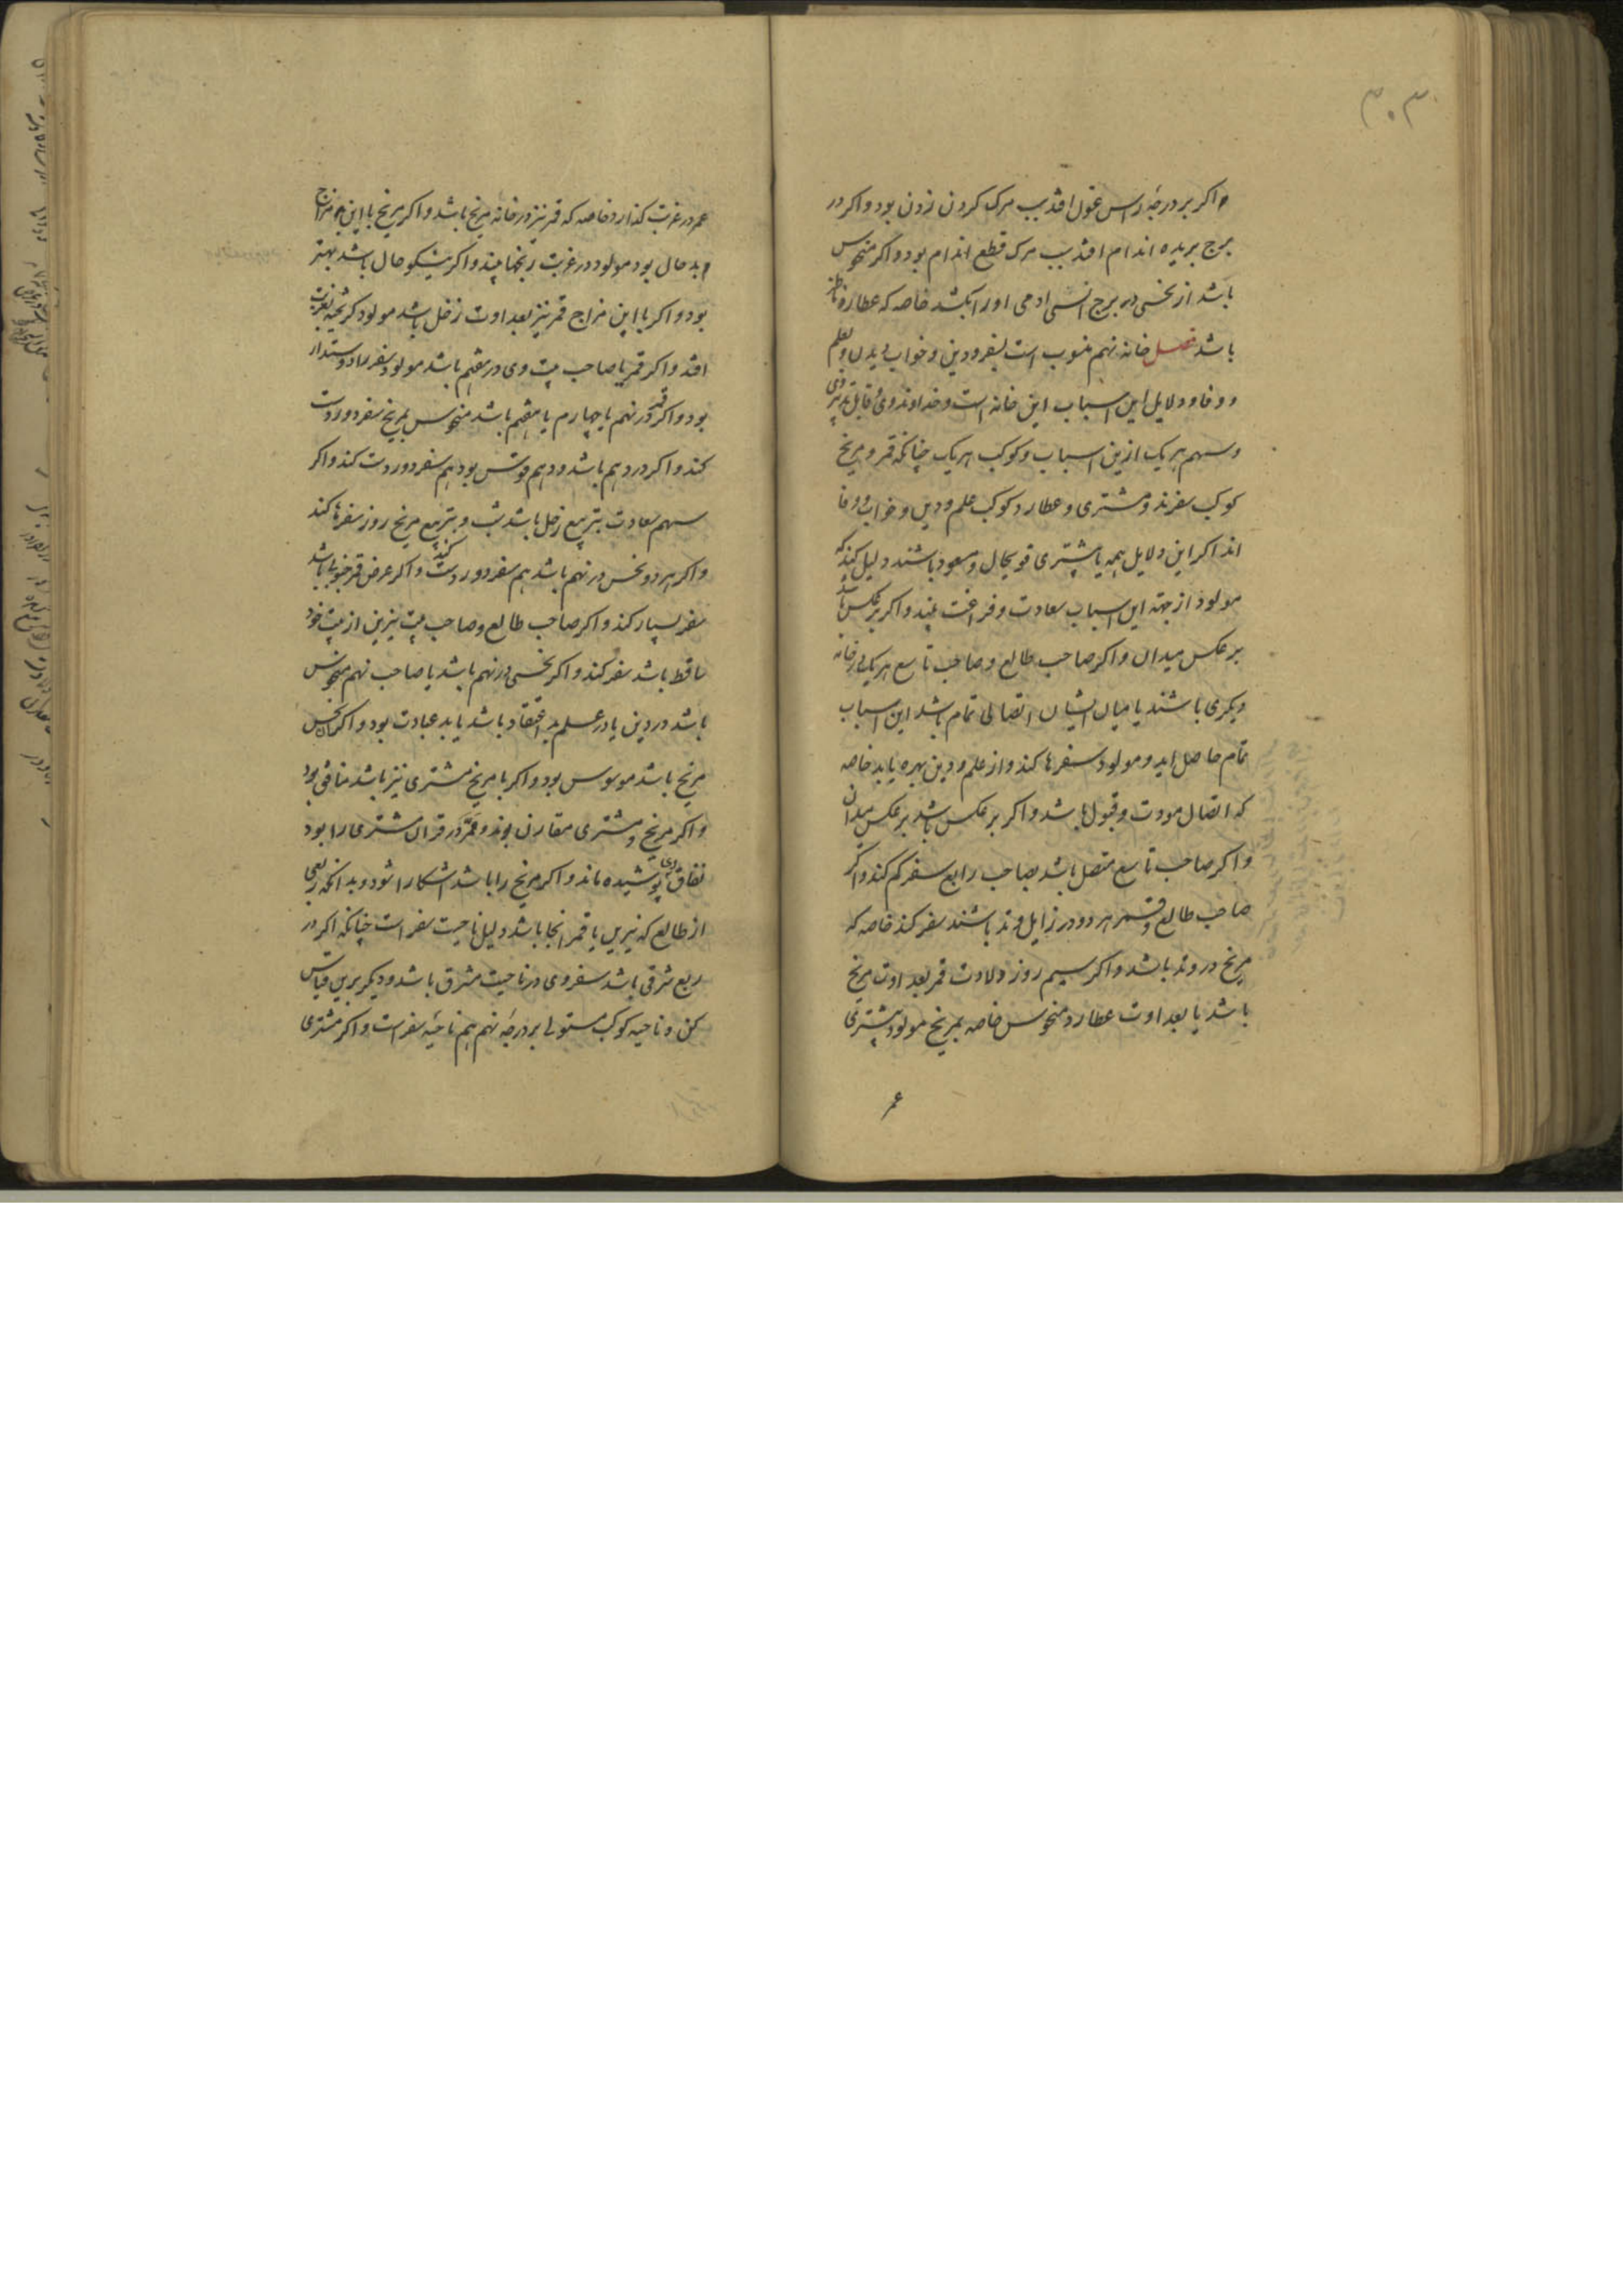 ۳۰۳
و اکر بر درجهٔ راس غول افتد سبب مرک کردن زدن بود و اکر در
برج بریده اندام افتد سبب مرک قطع اندام بود و اکر منحوس
باشد از نحسی در برج انسی ادمی او را بکشد خاصه که عطارد ناظر
باشد فصل خانه نهم منسوب است بسفر و دین و خواب دیدن و بعلم
و وفا و دلایل این اسباب این خانه است و خداوند وی و قابل تدبیر وی
و سهم هر یک ازین اسباب و کوکب هر یک چنانکه قمر و مریخ
کوکب سفرند و مشتری و عطارد کوکب علم و دین و خواب و وفا
اند اکر این دلایل همه یا بیشتری قوی حال و مسعود باشند دلیل کند که
مولود از جهة این اسباب سعادت و فراغت بیند و اکر برعکس باشد
بر عکس میدان و اکر صاحب طالع و صاحب تاسع هر یک در خانه
دیکری باشند یا میان ایشان اتصالی تمام باشد این اسباب
تمام حاصل اید و مولود سفرها کند و از علم و دین بهره یابد خاصه
که اتصال مودت و قبول باشد و اکر بر عکس باشد بر عکس میدان
و اکر صاحب تاسع متصل باشد بصاحب رابع سفر کم کند و اکر
صاحب طالع و قمر هر دو در زایل وتد باشند سفر کند خاصه که
مریخ در وتد باشد و اکر سیم روز ولادت قمر بعداوت مریخ
باشد یا بعداوت عطارد منحوس خاصه بمریخ مولود بیشتری
عمر
عمر در غربت کذارد خاصه که قمر نیز در خانه مریخ باشد و اکر مریخ با این مزاج
بد حال بود مولود در غربت رنجها بیند و اکر نیکو حال باشد بهتر
بود و اکر با این مزاج قمر نیز بعداوت زحل باشد مولود کریخته بغربت
افتد و اکر قمر یا صاحب بیت وی در هفتم باشد مولود سفر را دوستدار
بود و اکر قمر در نهم یا چهارم یا هفتم باشد منحوس بمریخ سفر دور دست
کند و اکر در دهم باشد و دهم قوس بود هم سفر دور دست کند و اکر
سهم سعادت بتربیع زحل باشد بشب و بتربیع مریخ روز سفرها کند
و اکر هر دو نحس در نهم باشد هم سفر دور دست کند و اکر عرض قمر جنوبی باشد
سفر بسیار کند و اکر صاحب طالع و صاحب بیت نیرین از بیت خود
ساقط باشد سفر کند و اکر نحسی در نهم باشد یا صاحب نهم منحوس
باشد در دین یا در علم بد اعتقاد باشد یا بد عبادت بود و اکر ان نحس
مریخ باشد موسوس بود و اکر با مریخ مشتری نیز باشد منافق بود
و اکر مریخ و مشتری مقارن بوند و ممر در قران مشتری را بود
نفاق وی پوشیده ماند و اکر مریخ را باشد اشکارا شود و بدانکه ربعی
از طالع که نیرین یا قمر انجا باشد دلیل ناحیت سفر است چنانکه اکر در
ربع شرقی باشد سفر وی در ناحیت مشرق باشد و دیکر برین قیاس
کن و ناحیه کوکب مستولی بر درجهٔ نهم هم ناحیهٔ سفر است و اکر مشتری